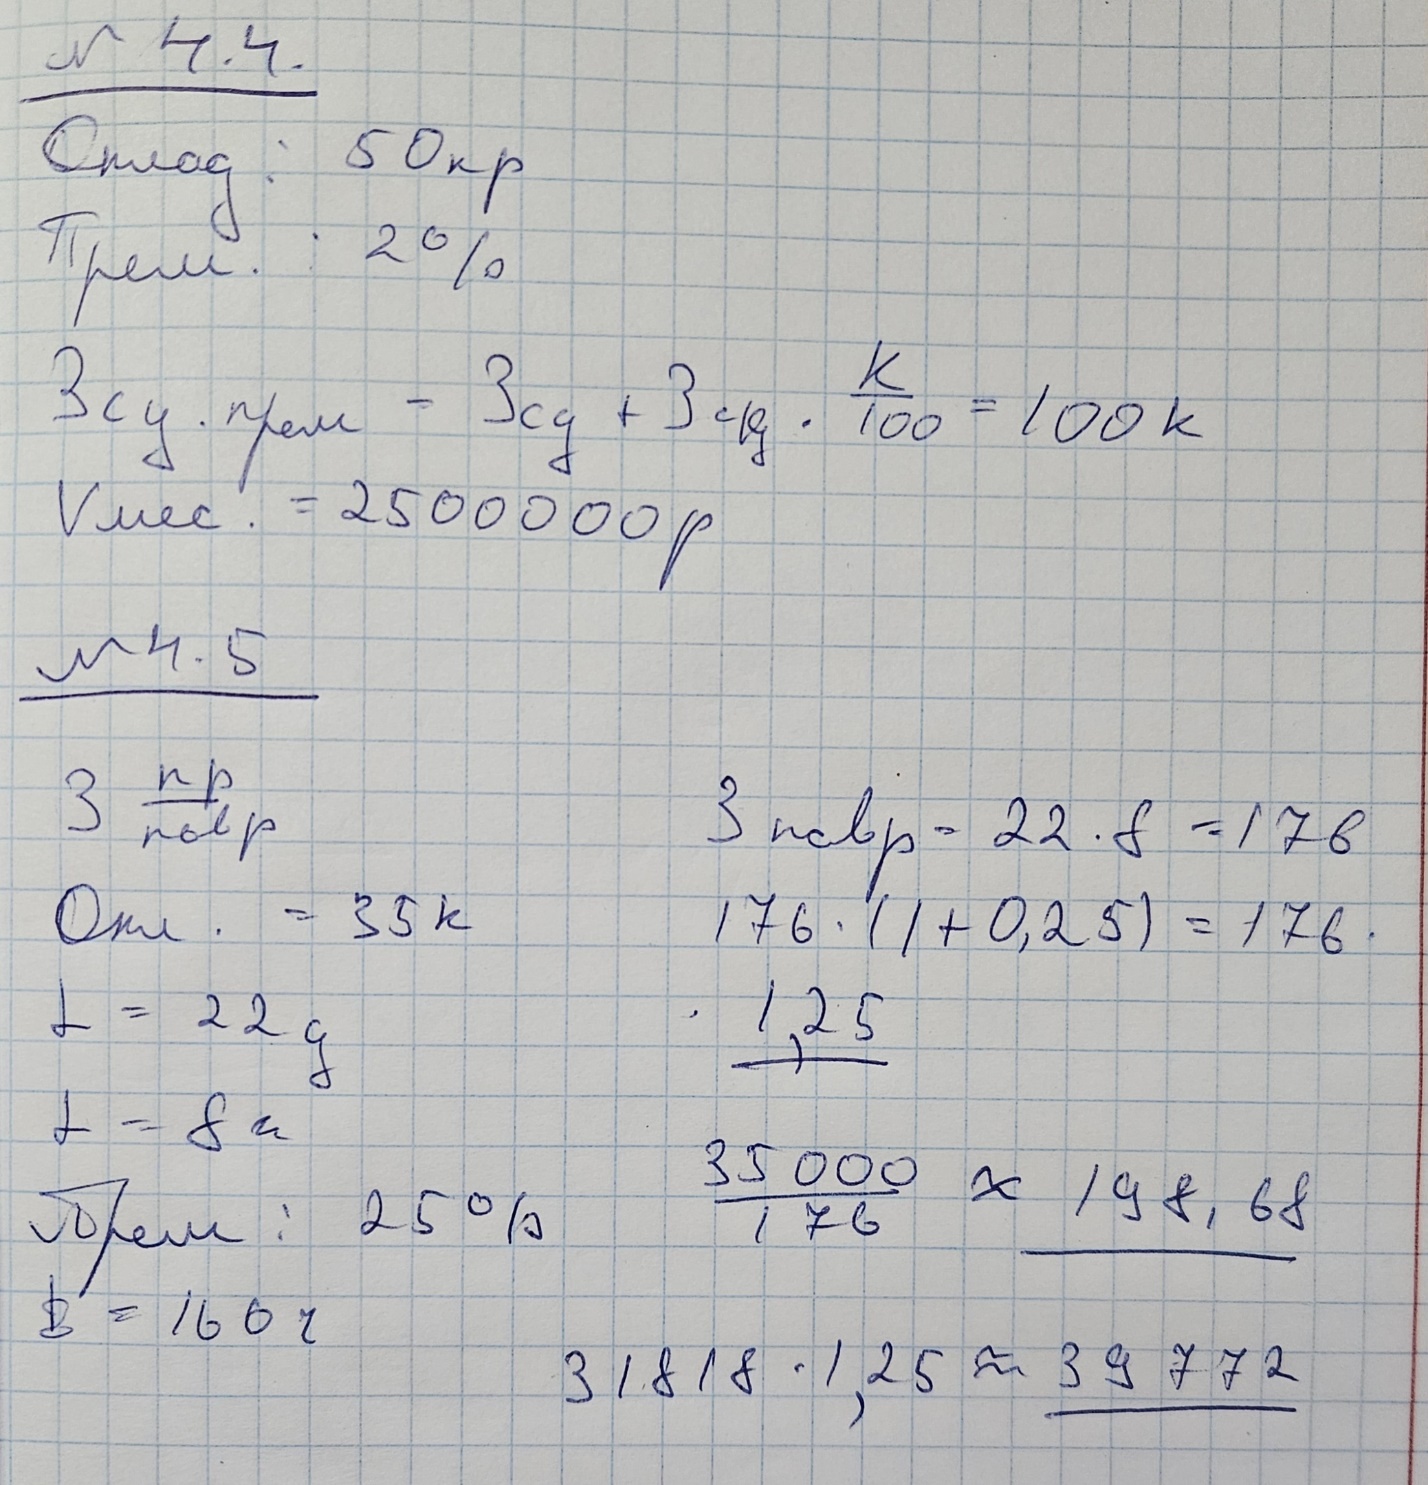 № 4.4.
Оклад: 50кр
Прем. : 2%
Зсд.прем = Зсд + Зсд . k/100 = 100к
Vмес. = 2500000р
№ 4.5
З пр/повр
Окл. = 35к
t = 22д
t = 8ч
Прем: 25%
В = 160ч
З повр = 22 . 8 = 176
176 . (1 + 0,25) = 176 .
. 1,25
35000/176 ≈ 198,68
31818 . 1,25 ≈ 39772